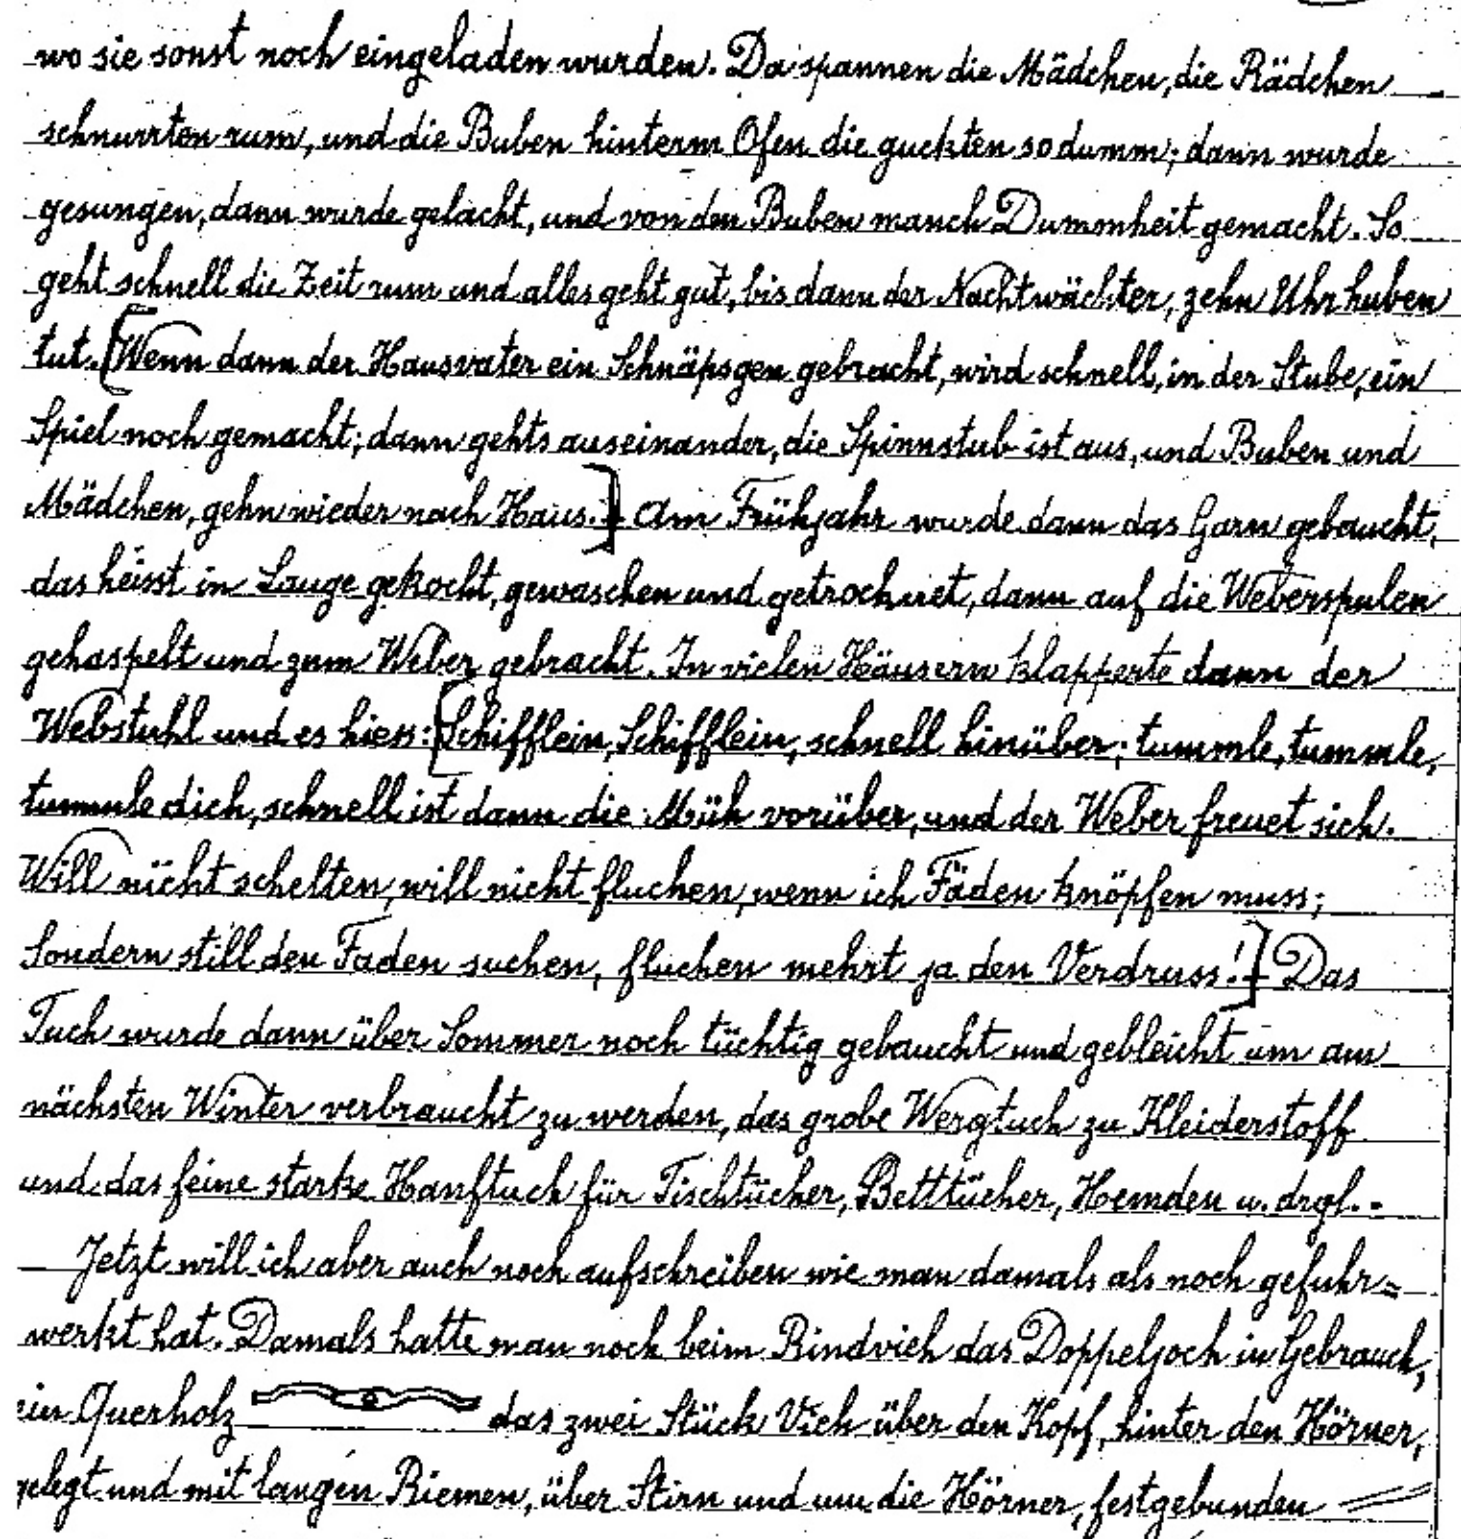 wo sie sonst noch eingeladen wurden. Da spannen die Mädchen, die Rädchen
schnurrten rum, und die Buben hinterm Ofen die guckten so dumm; dann wurde
gesungen, dann wurde gelacht, und von den Buben manch Dummheit gemacht. So
geht schnell die Zeit rum und alles geht gut, bis dann der Nachtwächter, zehn Uhr huben
tut. [Wenn dann der Hausvater ein Schnäpsgen gebracht, wird schnell, in der Stube, ein
Spiel noch gemacht; dann gehts auseinander, die Spinnstub ist aus, und Buben und
Mädchen, gehn wieder nach Haus.] Am Frühjahr wurde dann das Garn gebaucht,
das heisst in Lauge gekocht, gewaschen und getrocknet, dann auf die Weberspulen
gehaspelt und zum Weber gebracht. In vielen Häusern klapperte dann der
Webstuhl und es hiess: [Schifflein, Schifflein, schnell hinüber; tummle, tummle,
tummle dich, schnell ist dann die Müh vorüber, und der Weber freuet sich.
Will nicht schelten, will nicht fluchen, wenn ich Fäden knöpfen muss;
Sondern still den Faden suchen, fluchen mehrt ja den Verdruss!] Das
Tuch wurde dann über Sommer noch tüchtig gebaucht und gebleicht um am
nächsten Winter verbraucht zu werden, das grobe Wergtuch zu Kleiderstoff
und das feine starke Hanftuch für Tischtücher, Betttücher, Hemden u. drgl. -
Jetzt will ich aber auch noch aufschreiben wie man damals als noch gefuhr=
werkt hat. Damals hatte man noch beim Rindvieh das Doppeljoch in Gebrauch,
ein Querholz das zwei Stück Vieh über den Kopf, hinter den Hörner,
gelegt und mit langen Riemen, über Stirn und um die Hörner, festgebunden